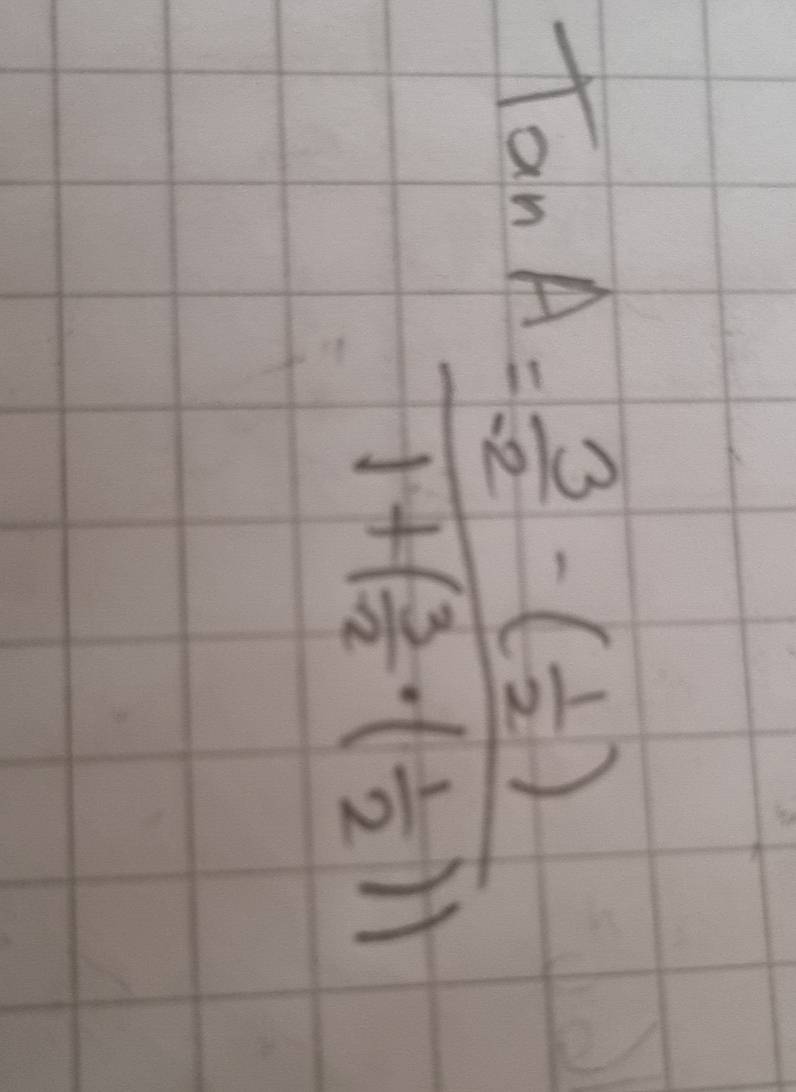 Tan A = 3/-2 - (1/2)
1 + (3/-2 · (1/2))